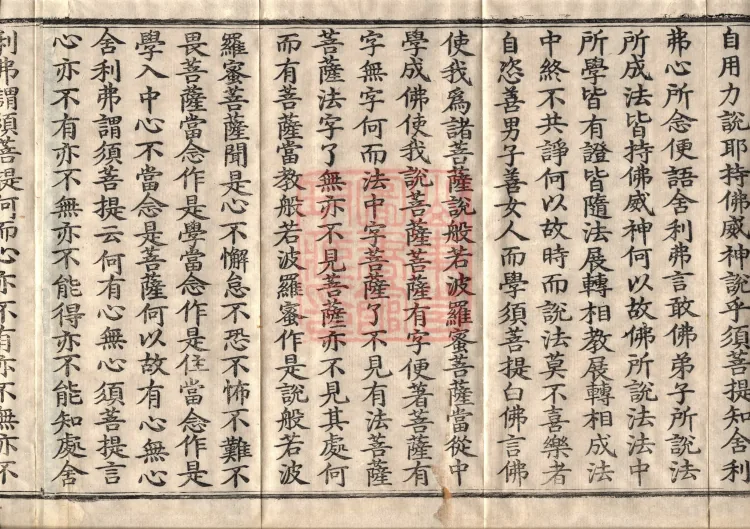 自用力說耶持佛威神說乎須菩提知舍利
弗心所念便語舍利弗言敢佛弟子所說法
所成法皆持佛威神何以故佛所說法法中
所學皆有證皆隨法展轉相教展轉相成法
中終不共諍何以故時而說法莫不喜樂者
自恣善男子善女人而學須菩提白佛言佛
使我爲諸菩薩說般若波羅蜜菩薩當從中
學成佛使我說菩薩菩薩有字便著菩薩有
字無字何而法中字菩薩了不見有法菩薩
菩薩法字了無亦不見菩薩亦不見其處何
而有菩薩當教般若波羅蜜作是說般若波
羅蜜菩薩聞是心不懈怠不恐不怖不難不
畏菩薩當念作是學當念作是住當念作是
學入中心不當念是菩薩何以故有心無心
舍利弗謂須菩提云何有心無心須菩提言
心亦不有亦不無亦不能得亦不能知處舍
利弗謂須菩提何而心亦不有亦不無亦不